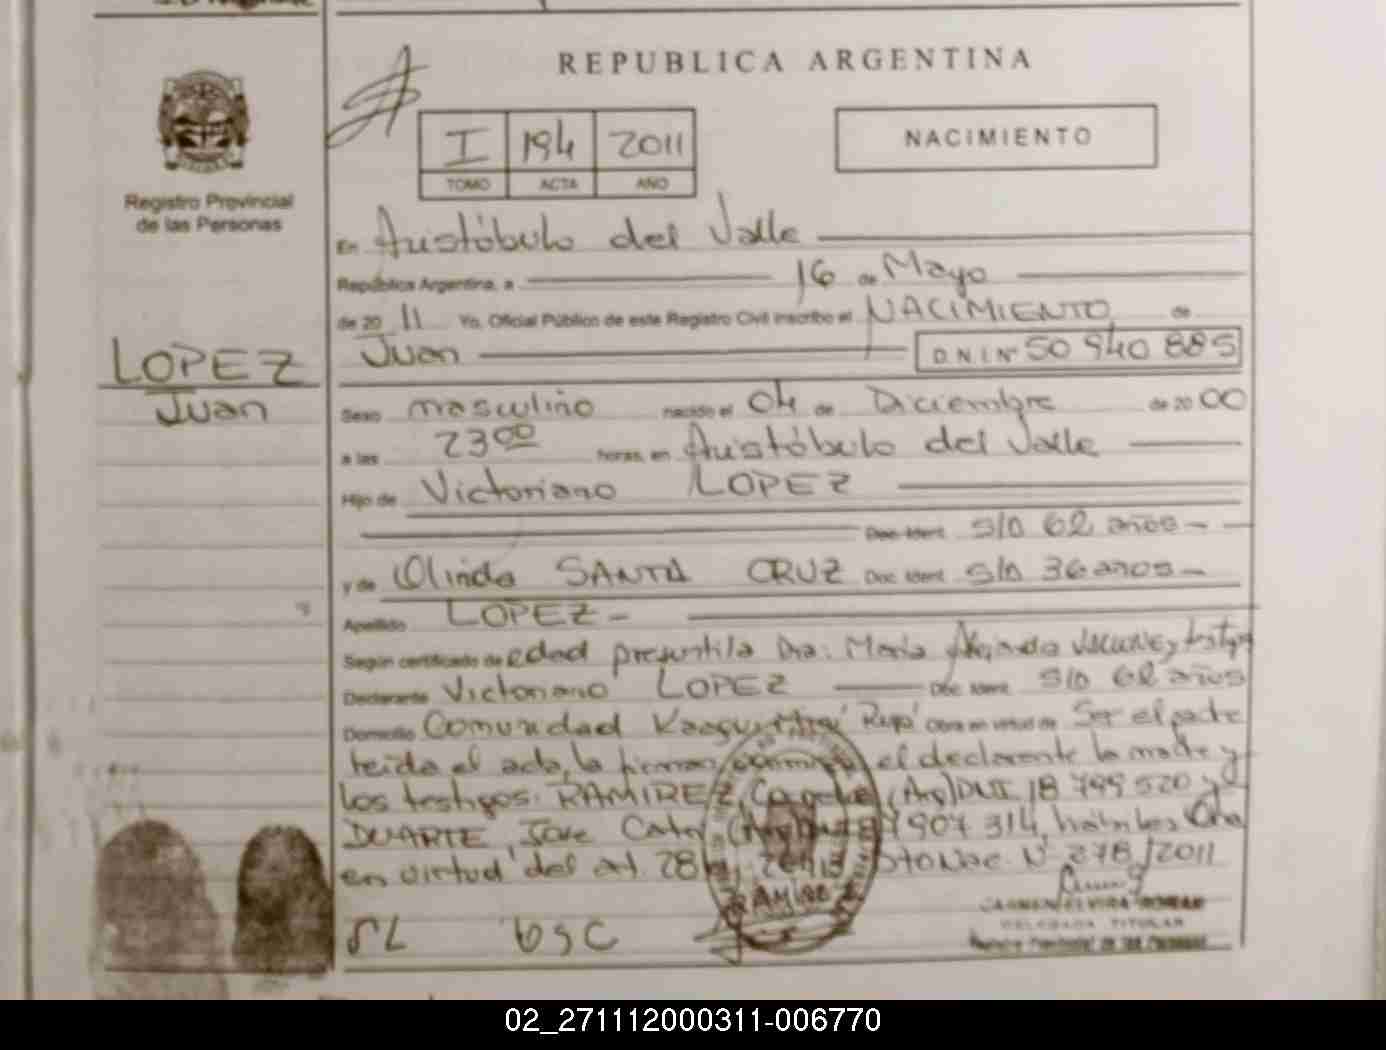 REPUBLICA ARGENTINA
I 194 2011
TOMO ACTA AÑO
NACIMIENTO
Registro Provincial
de las Personas
LOPEZ
Juan
En Aristóbulo del Valle
República Argentina, a 16 de Mayo
de 20 11 Yo, Oficial Público de este Registro Civil inscribo el NACIMIENTO de
Juan D.N.I.Nº 50 940 885
Sexo masculino nacido el 04 de Diciembre de 20 00
a las 23 00 horas, en Aristóbulo del Valle
Hijo de Victoriano LOPEZ
Doc. Ident. S/D 62 años
y de Olinda SANTA CRUZ Doc. Ident. S/D 36 años
Apellido LOPEZ
Según certificado de edad presuntiva Dra: María Alejandra y testigos
Declarante Victoriano LOPEZ Doc. Ident. S/D 62 años
Domicilio Comunidad Obra en virtud de Ser el padre
leída el acta, la firman conmigo el declarante la madre y
los testigos: RAMIREZ, (Arg) DNI 18 799 520 y
DUARTE, José (Arg) 907 314, hábiles Obra
en virtud del art. 28 Dto Nac. Nº 278/2011
RAMIREZ
CARMEN ELVIRA
DELEGADA TITULAR
Registro Provincial de las Personas
02_271112000311-006770